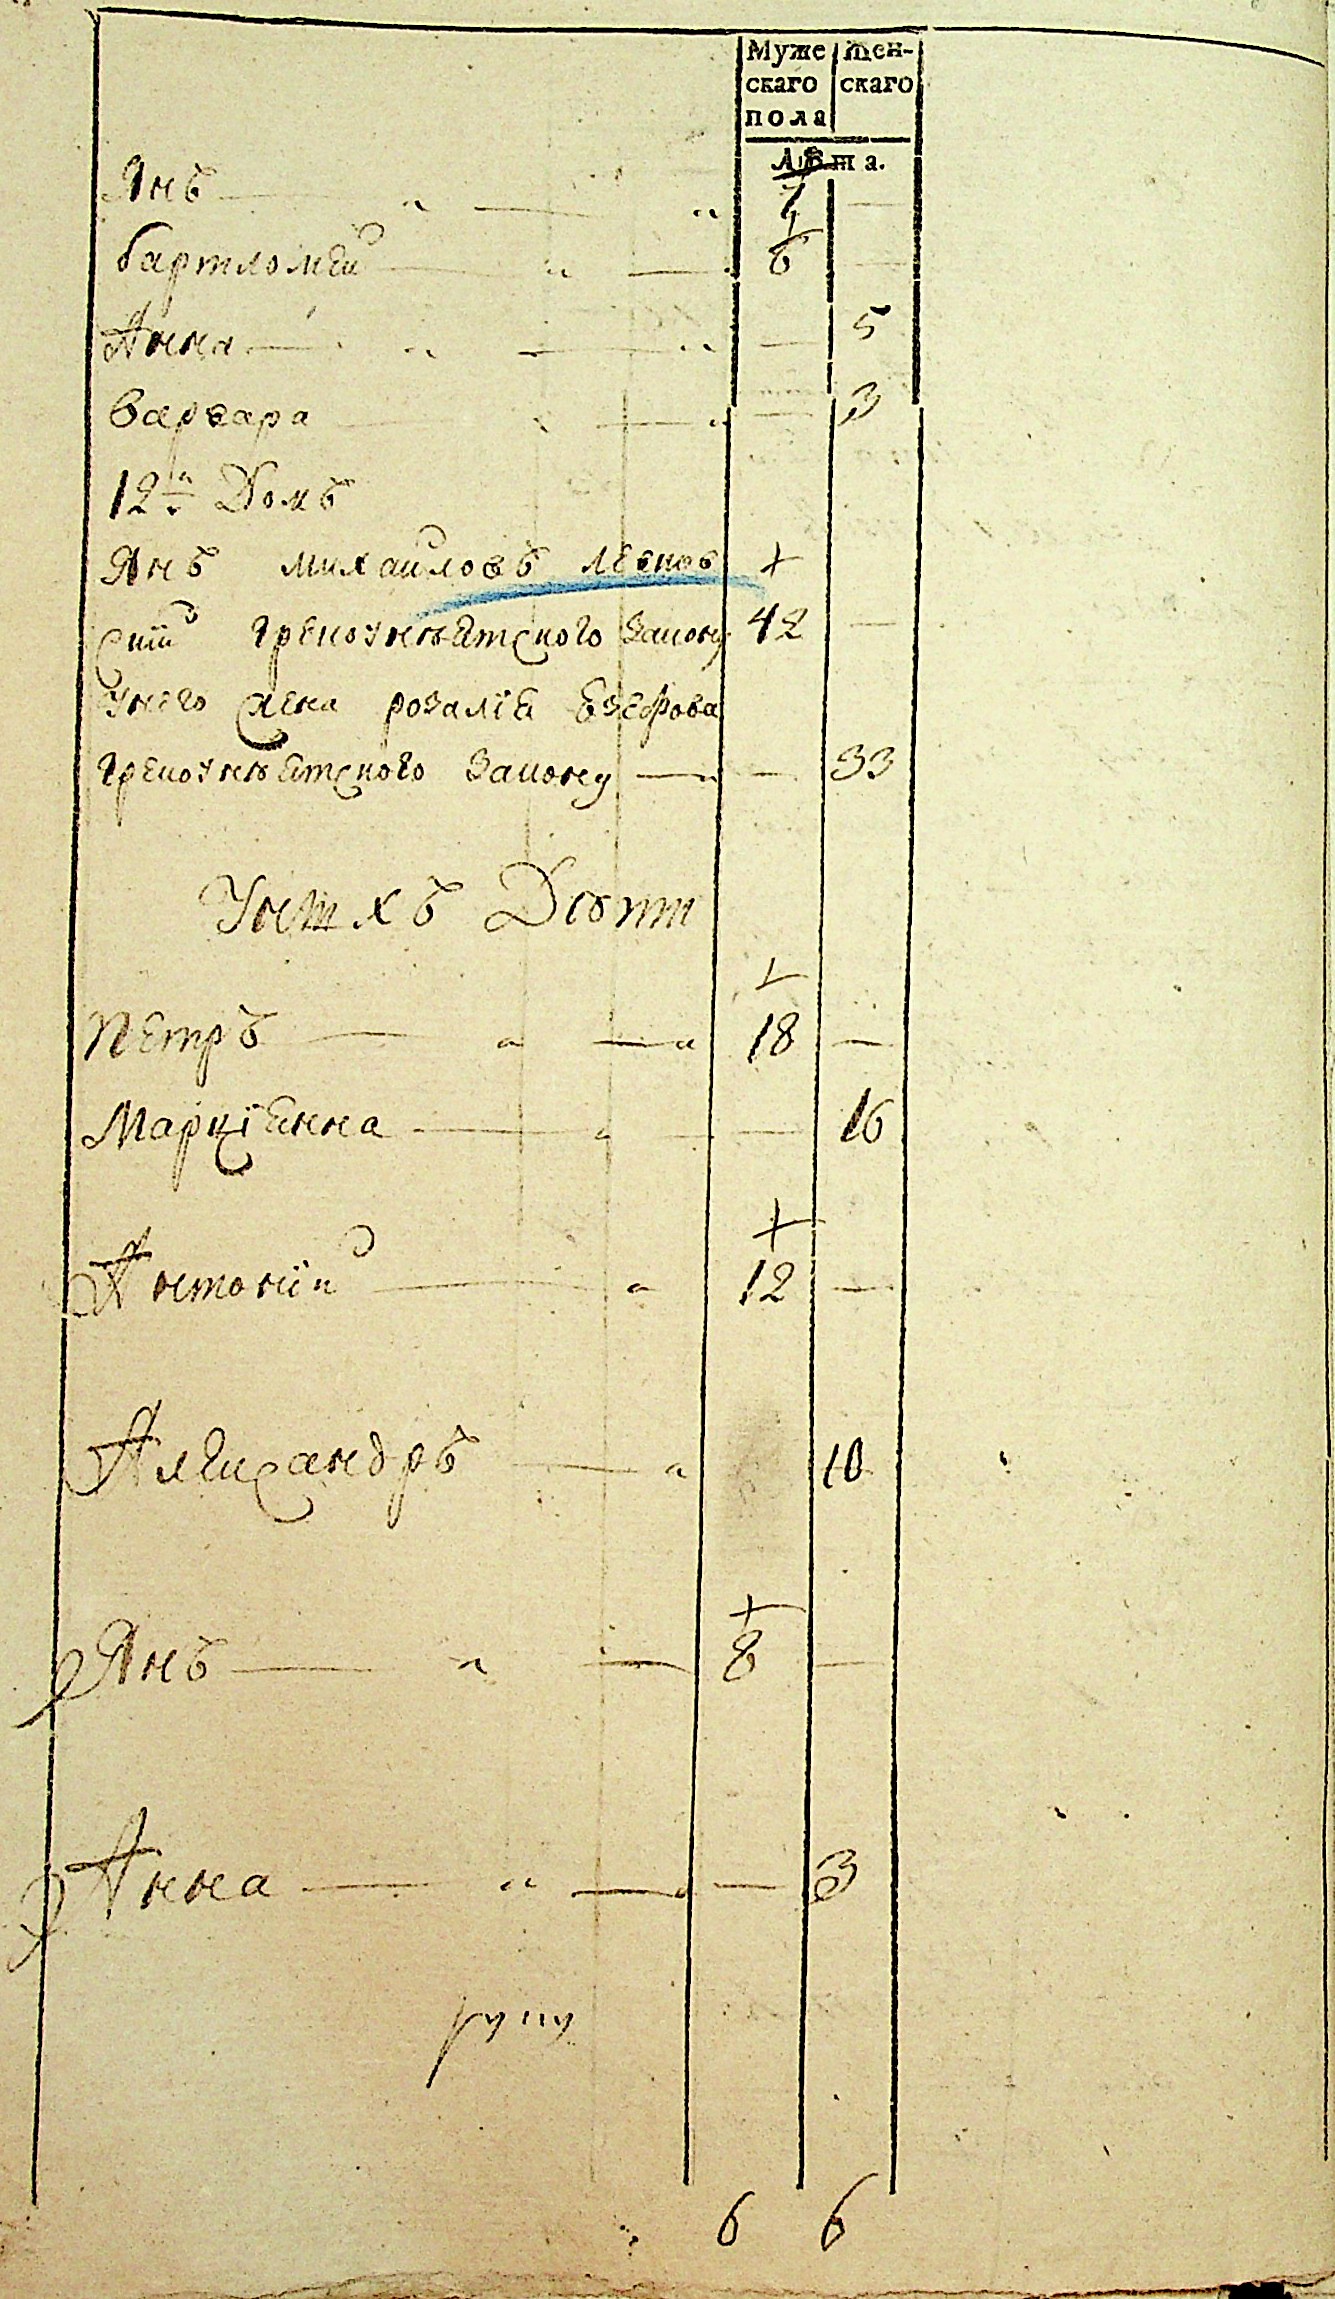 Муже скаго пола Жен- скаго
Лѣта.
Янъ — " — " 7 —
бартломей — " — 6 —
Анна — " — " — 5
варвара — " — 3
12й Домъ
Янъ михайловъ левков +
скїй грекоунѣятского закону 42 —
унего жена розалїя Езефова
грекоунѣятского закону — — 33
Унихъ Дѣти
+
петръ — " — " 18 —
Марцїянна — " — — 16
+
Антонїй — " 12 —
Алеисандръ — " 10
+
Янъ — " — 8 —
Анна — " — — 3
6 6